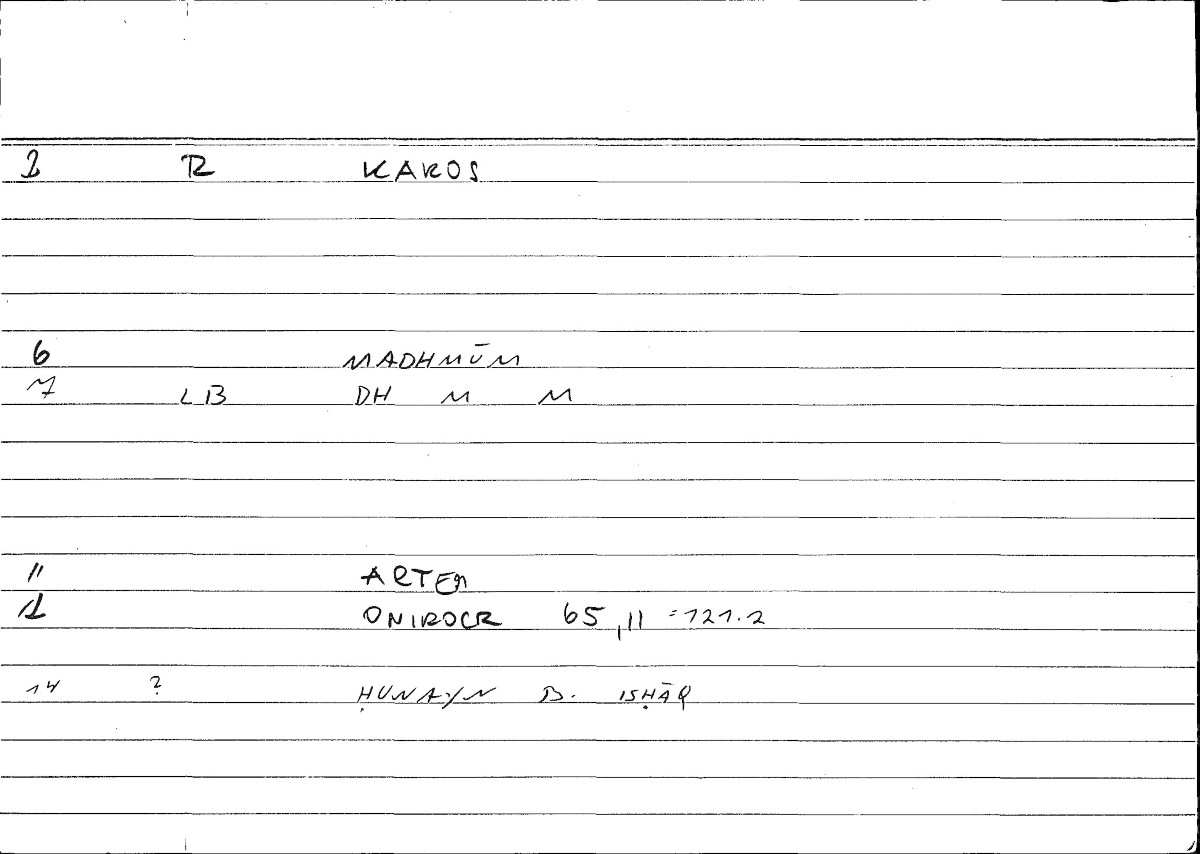 1 R KAKOS
6 MADHMŪM
7 LB DH M M
11 ARTEM
ONIROCR 65,11 =121.2
14 ? ḤUNAYN B. ISḤĀQ